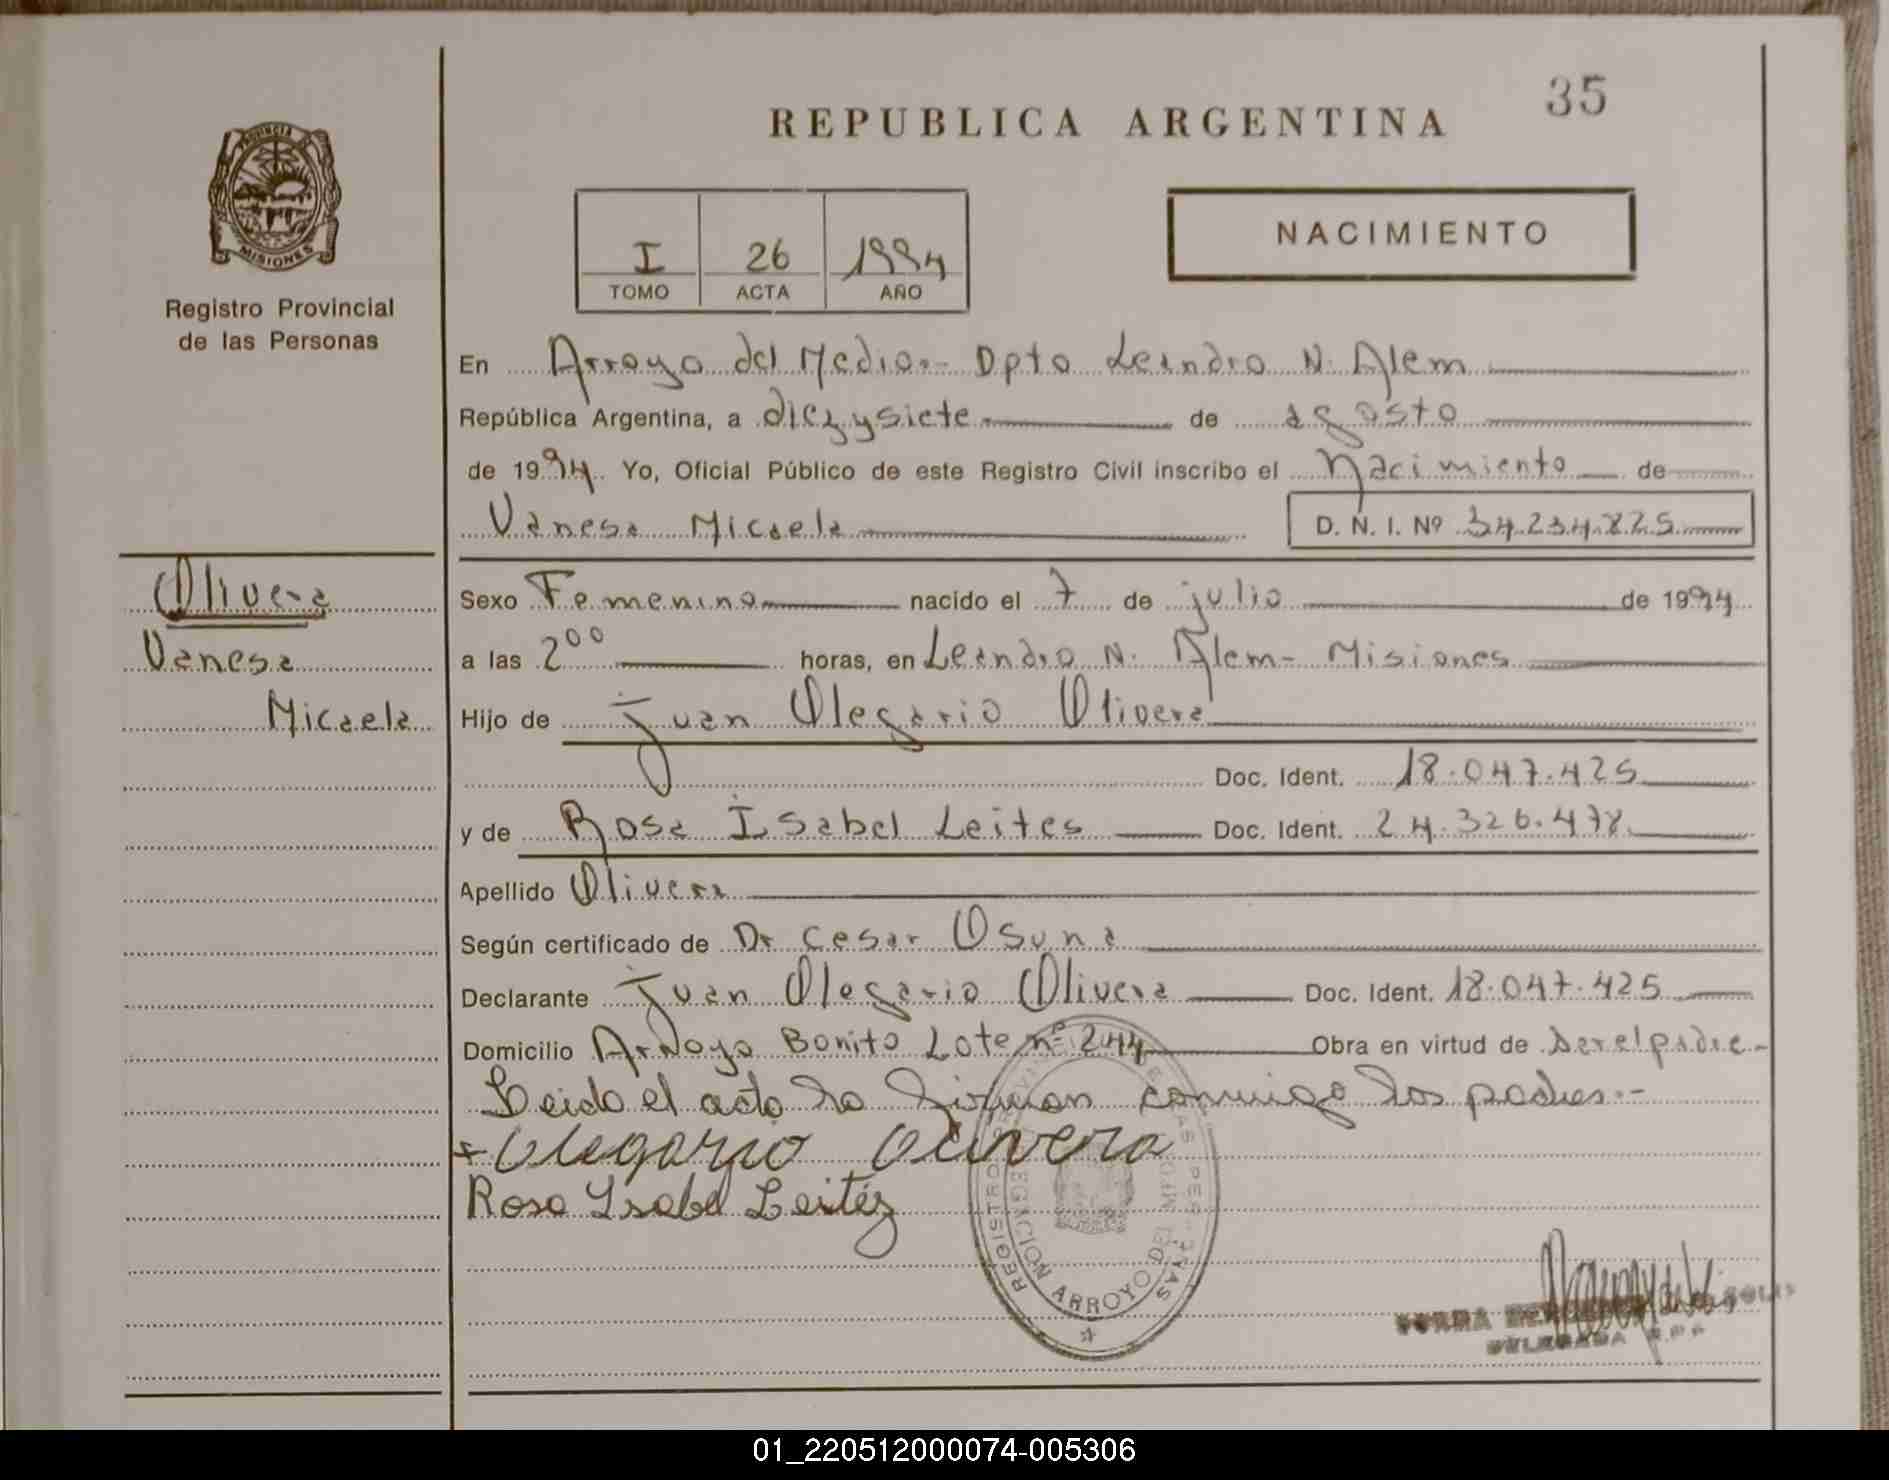 35
REPUBLICA ARGENTINA
PROVINCIA DE
MISIONES
Registro Provincial
de las Personas
I 26 1994
TOMO ACTA AÑO
NACIMIENTO
En Arroyo del Medio.- Dpto Leandro N. Alem
República Argentina, a diezysiete de agosto
de 1994. Yo, Oficial Público de este Registro Civil inscribo el Nacimiento de
Vanesa Micaela D. N. I. Nº 34.234.825
Olivera
Vanesa
Micaela
Sexo Femenino nacido el 7 de julio de 1994
a las 2 00 horas, en Leandro N. Alem- Misiones
Hijo de Juan Olegario Olivera
Doc. Ident. 18.047.425
y de Rosa Isabel Leites Doc. Ident. 24.326.478
Apellido Olivera
Según certificado de Dr Cesar Osuna
Declarante Juan Olegario Olivera Doc. Ident. 18.047.425
Domicilio Arroyo Bonito Lote nº 244 Obra en virtud de ser el padre-
Leido el acta la firman conmigo los padres.-
+ Olegario Olivera
Rosa Ysabel Leitéz
REGISTRO DE LAS PERSONAS
ARROYO DEL
DELEGADA R.P.P.
01_220512000074-005306